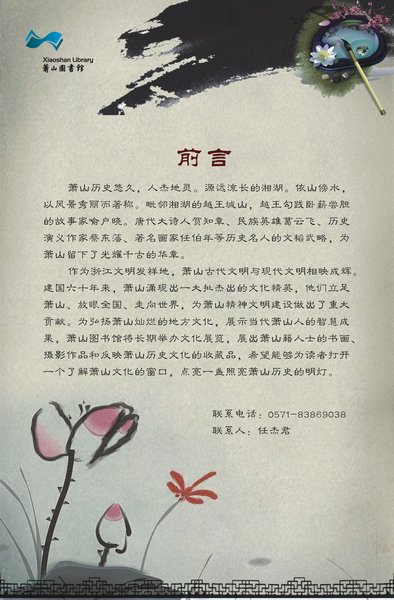 Xiaoshan Library
萧山图书馆
前言
萧山历史悠久，人杰地灵。源远流长的湘湖。依山傍水，
以风景秀丽而著称。毗邻湘湖的越王城山，越王勾践卧薪尝胆
的故事家喻户晓。唐代大诗人贺知章、民族英雄葛云飞、历史
演义作家蔡东藩、著名画家任伯年等历史名人的文韬武略，为
萧山留下了光耀千古的华章。
作为浙江文明发祥地，萧山古代文明与现代文明相映成辉。
建国六十年来，萧山涌现出一大批杰出的文化精英，他们立足
萧山、放眼全国、走向世界，为萧山精神文明建设做出了重大
贡献。为弘扬萧山灿烂的地方文化，展示当代萧山人的智慧成
果，萧山图书馆将长期举办文化展览，展出萧山籍人士的书画、
摄影作品和反映萧山历史文化的收藏品，希望能够为读者打开
一个了解萧山文化的窗口，点亮一盏照亮萧山历史的明灯。
联系电话：0571-83869038
联系人：任杰君